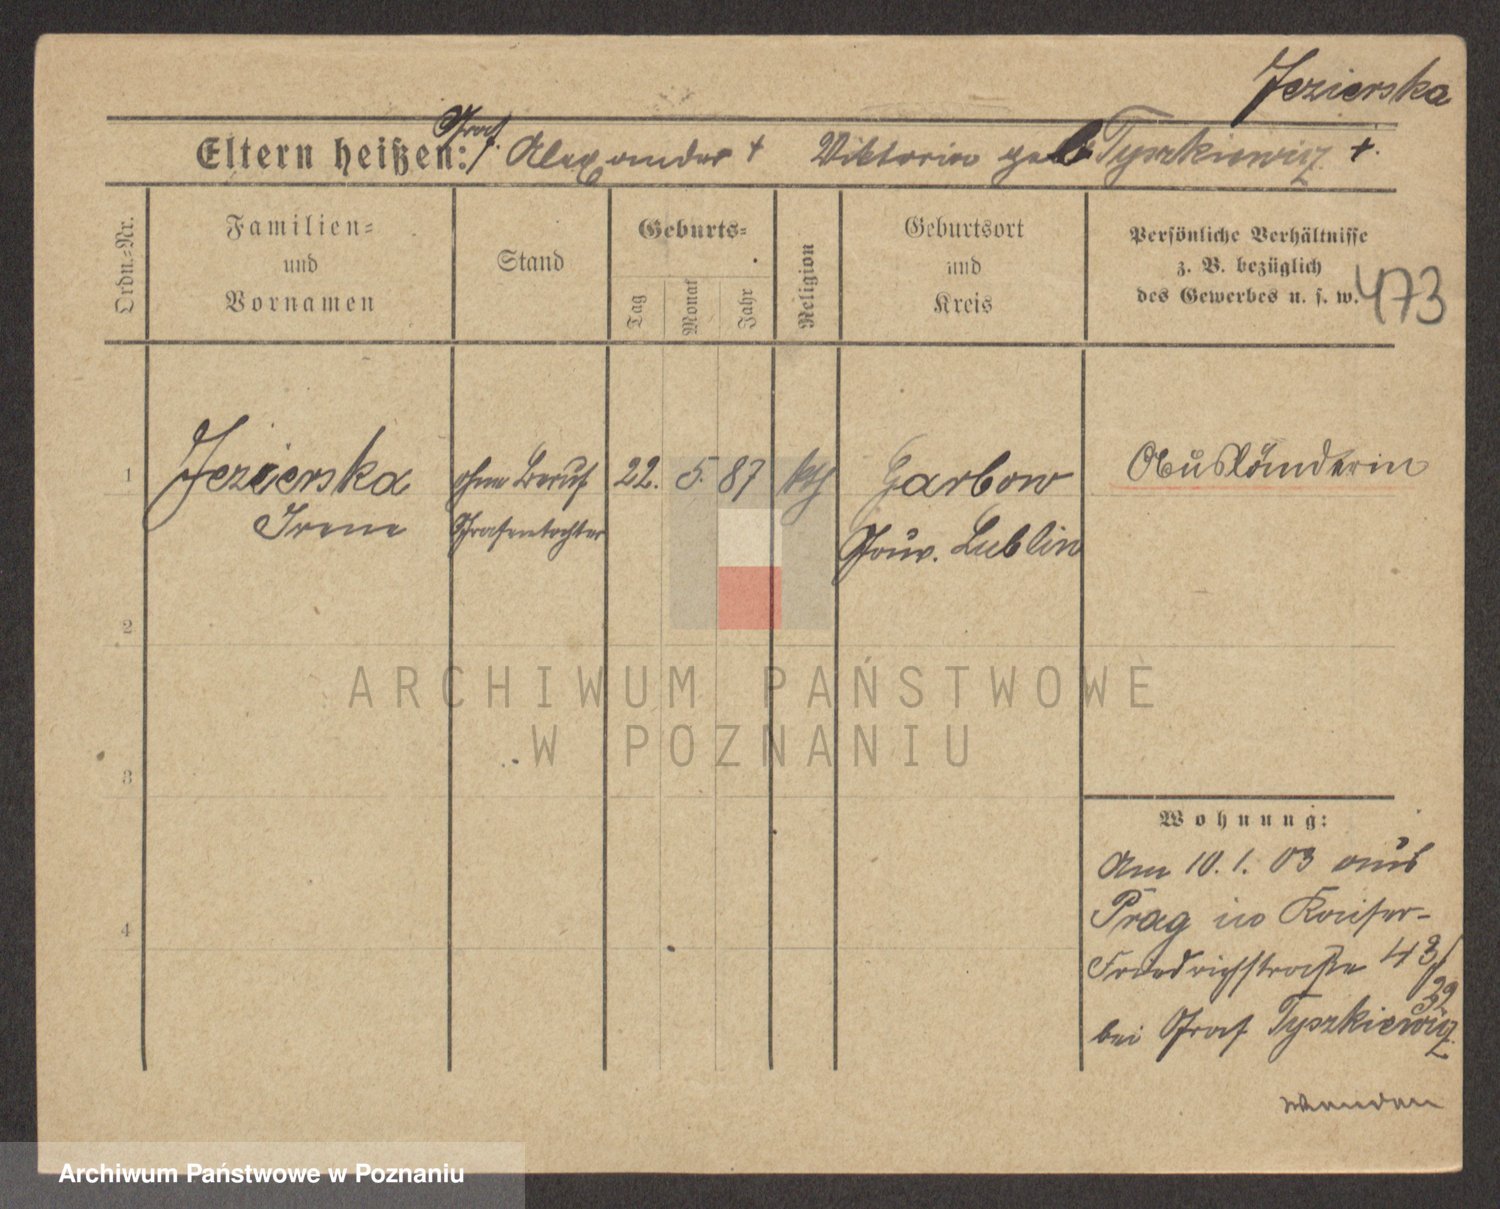 Jezierska
Eltern heißen: Graf Alexander † Viktoria geb Tyszkiewicz †.
Ordn.-Nr.
Familien=
und
Vornamen
Stand
Geburts=
Tag
Monat
Jahr
Religion
Geburtsort
und
Kreis
Persönliche Verhältnisse
z. B. bezüglich
des Gewerbes u. s. w.
473
1
Jezierska
Irene
ohne Beruf
Grafentochter
22. 5. 87
kth
Garbow
Gouv. Lublin
Ausländerin
2
3
4
ARCHIWUM PAŃSTWOWE
W POZNANIU
Wohnung:
Am 10. 1. 03 aus
Prag in Kaiser-
Friedrichstraße 43/
39
bei Graf Tyszkiewicz
Archiwum Państwowe w Poznaniu